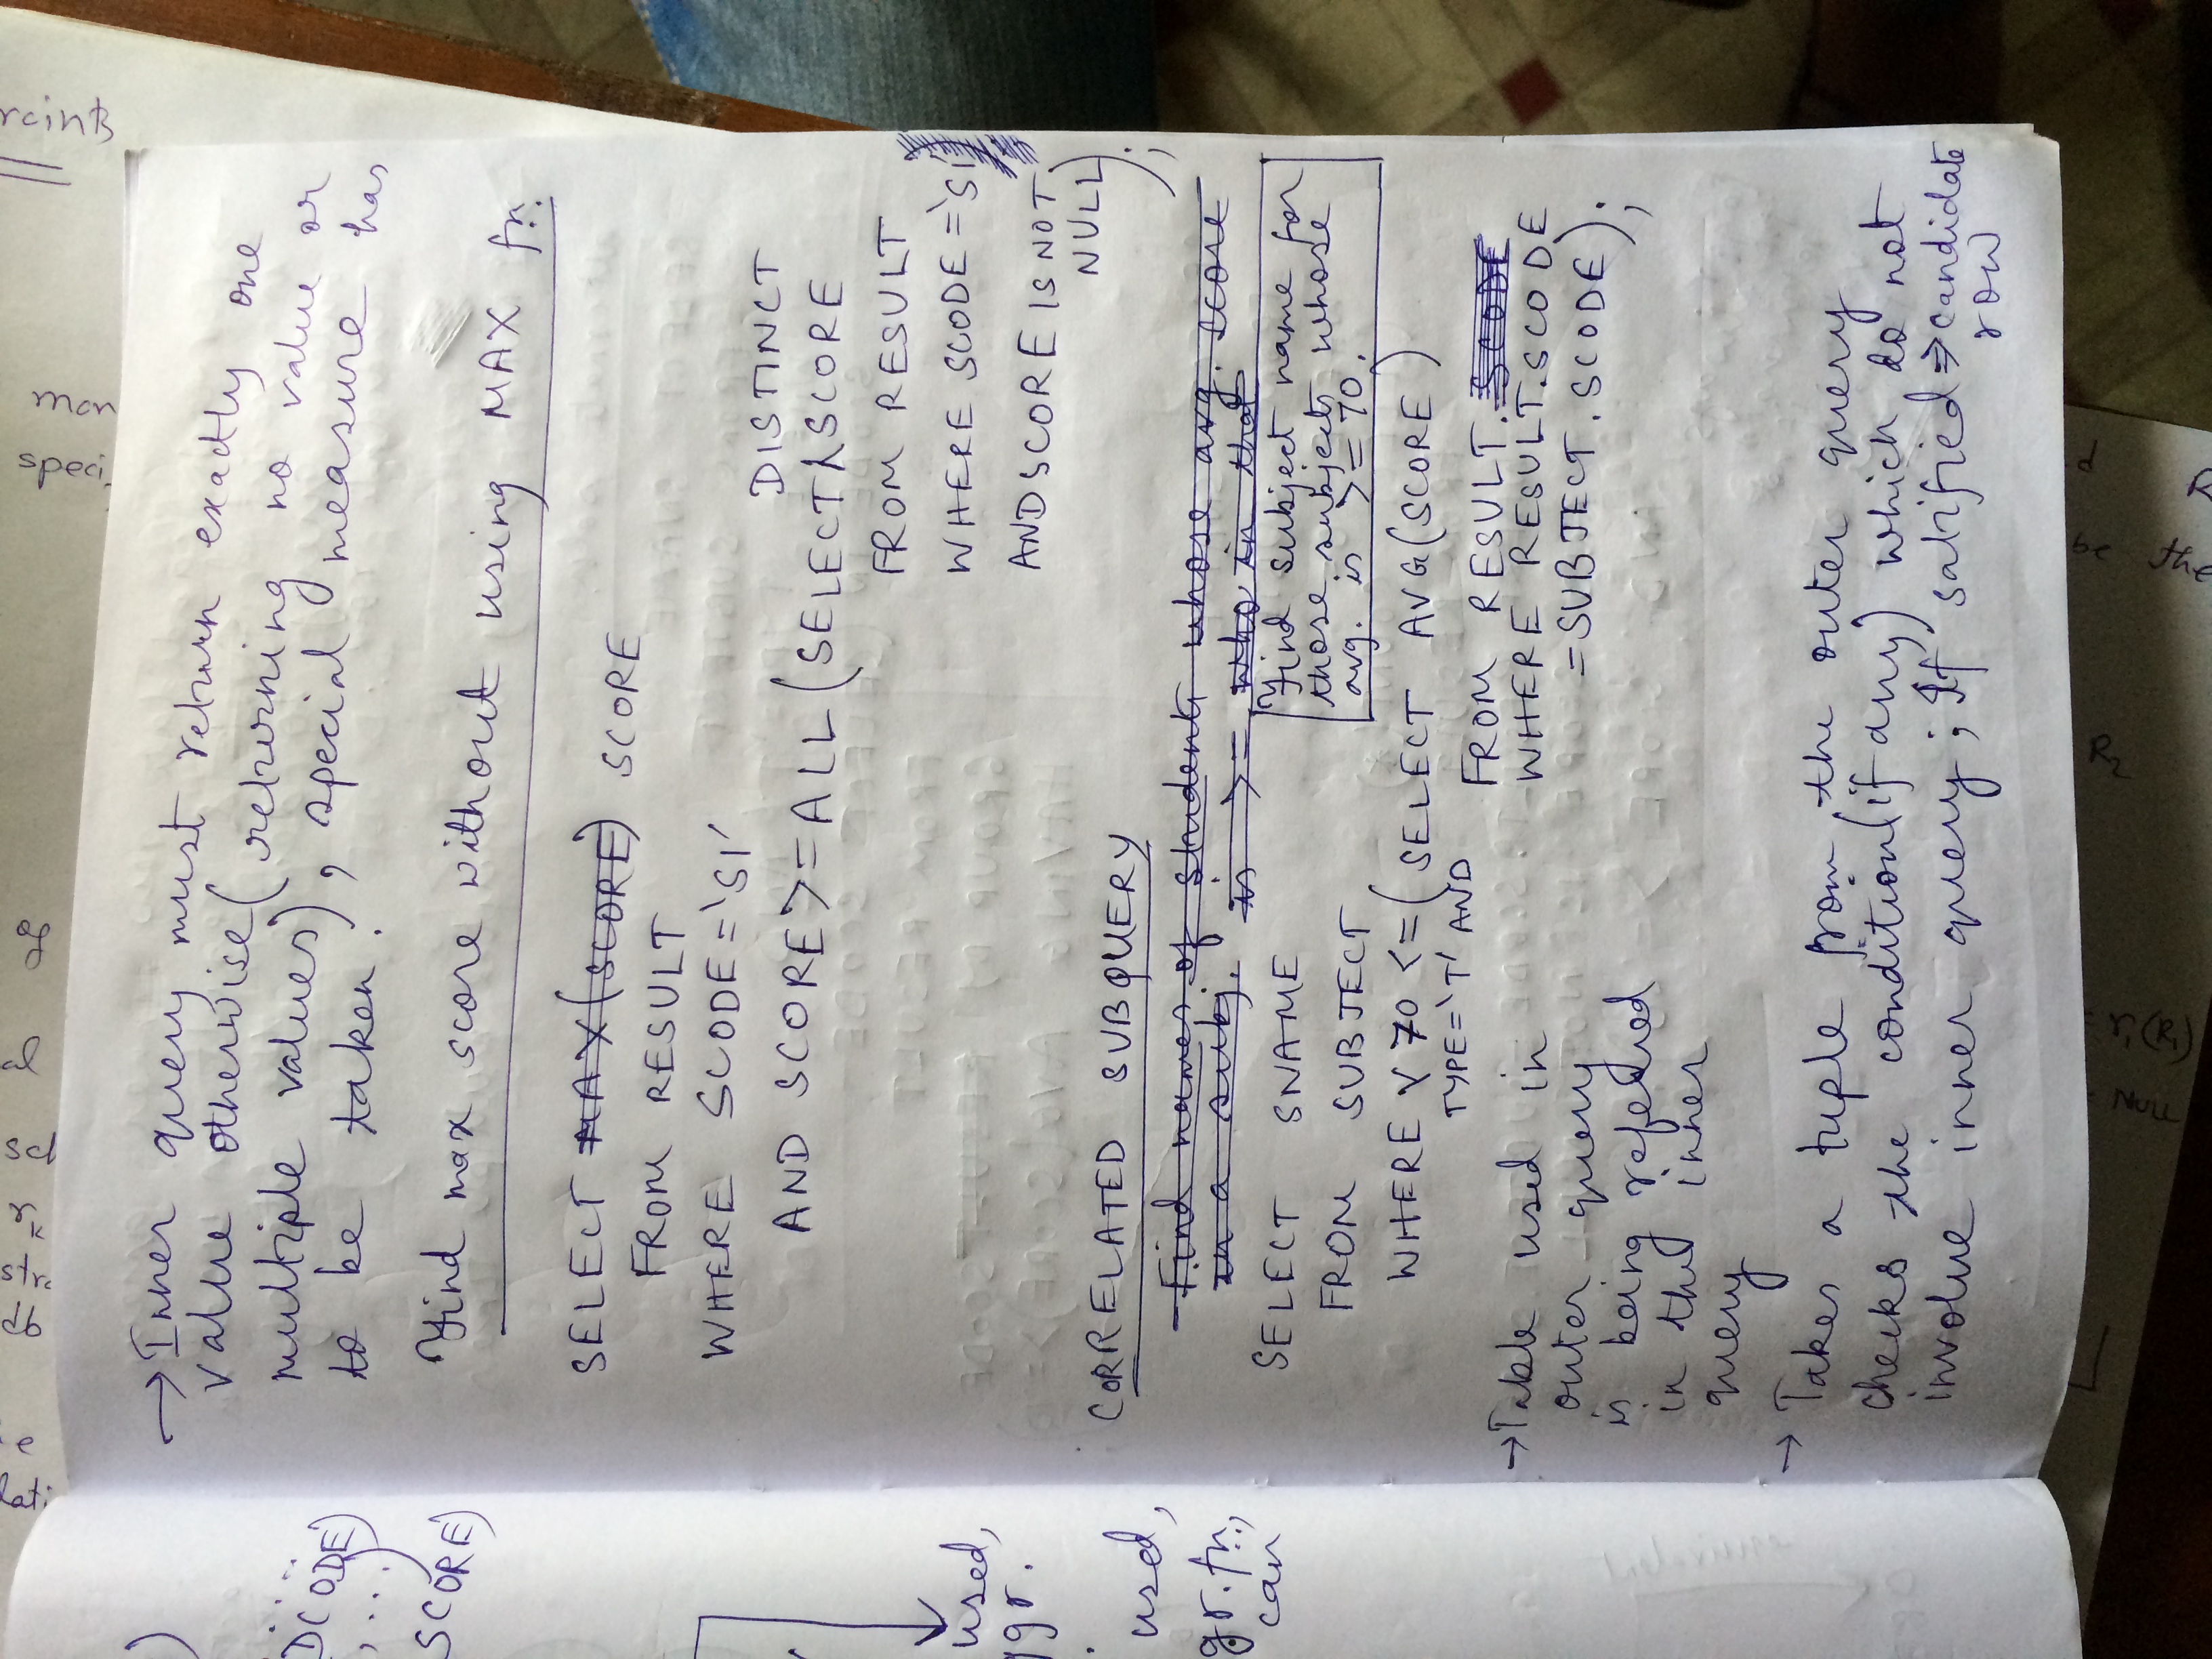 → Inner query must return exactly one
value otherwise (returning no value or
multiple values), special measure has
to be taken.
Find max score without using MAX fn.
SELECT MAX(SCORE) SCORE
FROM RESULT
WHERE SCODE='S1'
AND SCORE>=ALL(SELECT DISTINCT SCORE
FROM RESULT
WHERE SCODE='S1'
AND SCORE IS NOT
NULL);
CORRELATED SUBQUERY
Find names of students whose avg. score
in a subj. is >= who in that
SELECT SNAME
FROM SUBJECT
Find subject name for
those subjects whose
avg. is >=70.
WHERE TYPE='T' AND 70 <=(SELECT AVG(SCORE)
FROM RESULT. SCODE
WHERE RESULT.SCODE
=SUBJECT.SCODE);
→ Table used in
outer query
is being referred
in the inner
query
→ Takes a tuple from the outer query
checks the condition(if any) which do not
involve inner query; If satified ⇒ candidate
row
DCODE)
, ...)
SCORE)
used,
gr.
used,
gr. fn,
can
man
speci
of
al